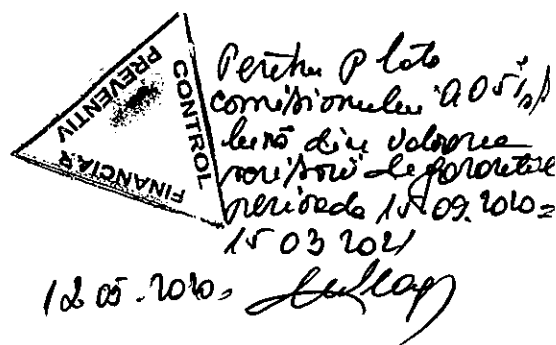 CONTROL
FINANCIAR
PREVENTIV
Pentru plata
comisionului 0.05%/
lună din valoarea
scrisorii de garantare
perioada 15.09.2020 =
15 03 2021
12.05.2020.